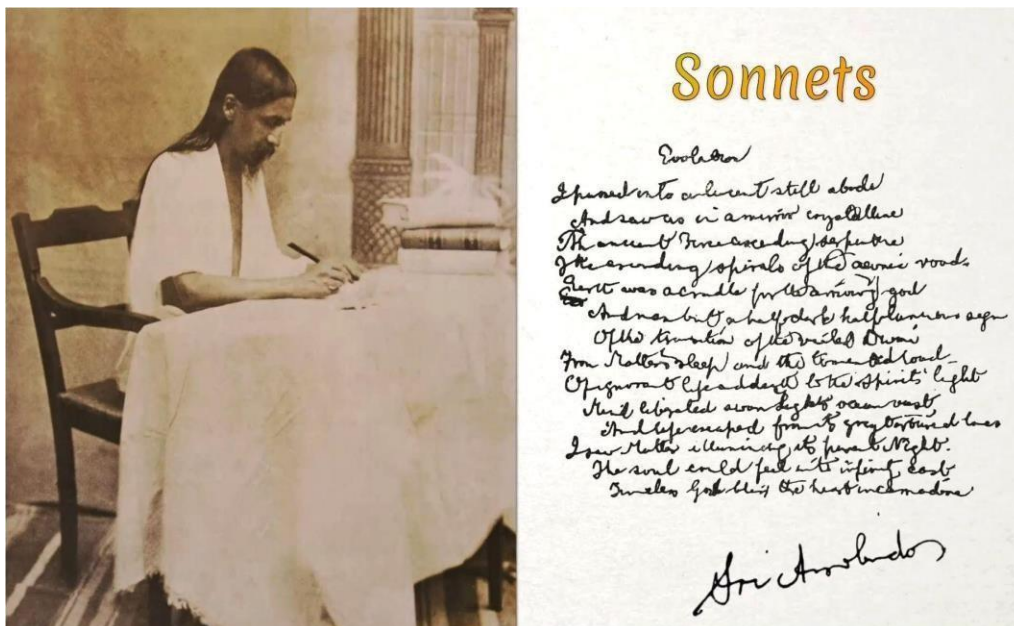 Sonnets
Evolution
I passed into a lucent still abode
And saw as in a mirror crystalline
ancient Force ascending serpentine
The spirals of the aeonic road.
Earth was a cradle for the arriving god
And man but a half-dark half-luminous sign
Of the transition of the veiled Divine
From Matter's sleep and the tormented load
Of ignorant life and death to the Spirit's light
Mind liberated swam Light's ocean vast
And life escaped from its grey tortured
I saw Matter illumining its parent Night.
The soul could feel into infinity cast
Timeless God-bliss the heart incarnadine
Sri Aurobindo